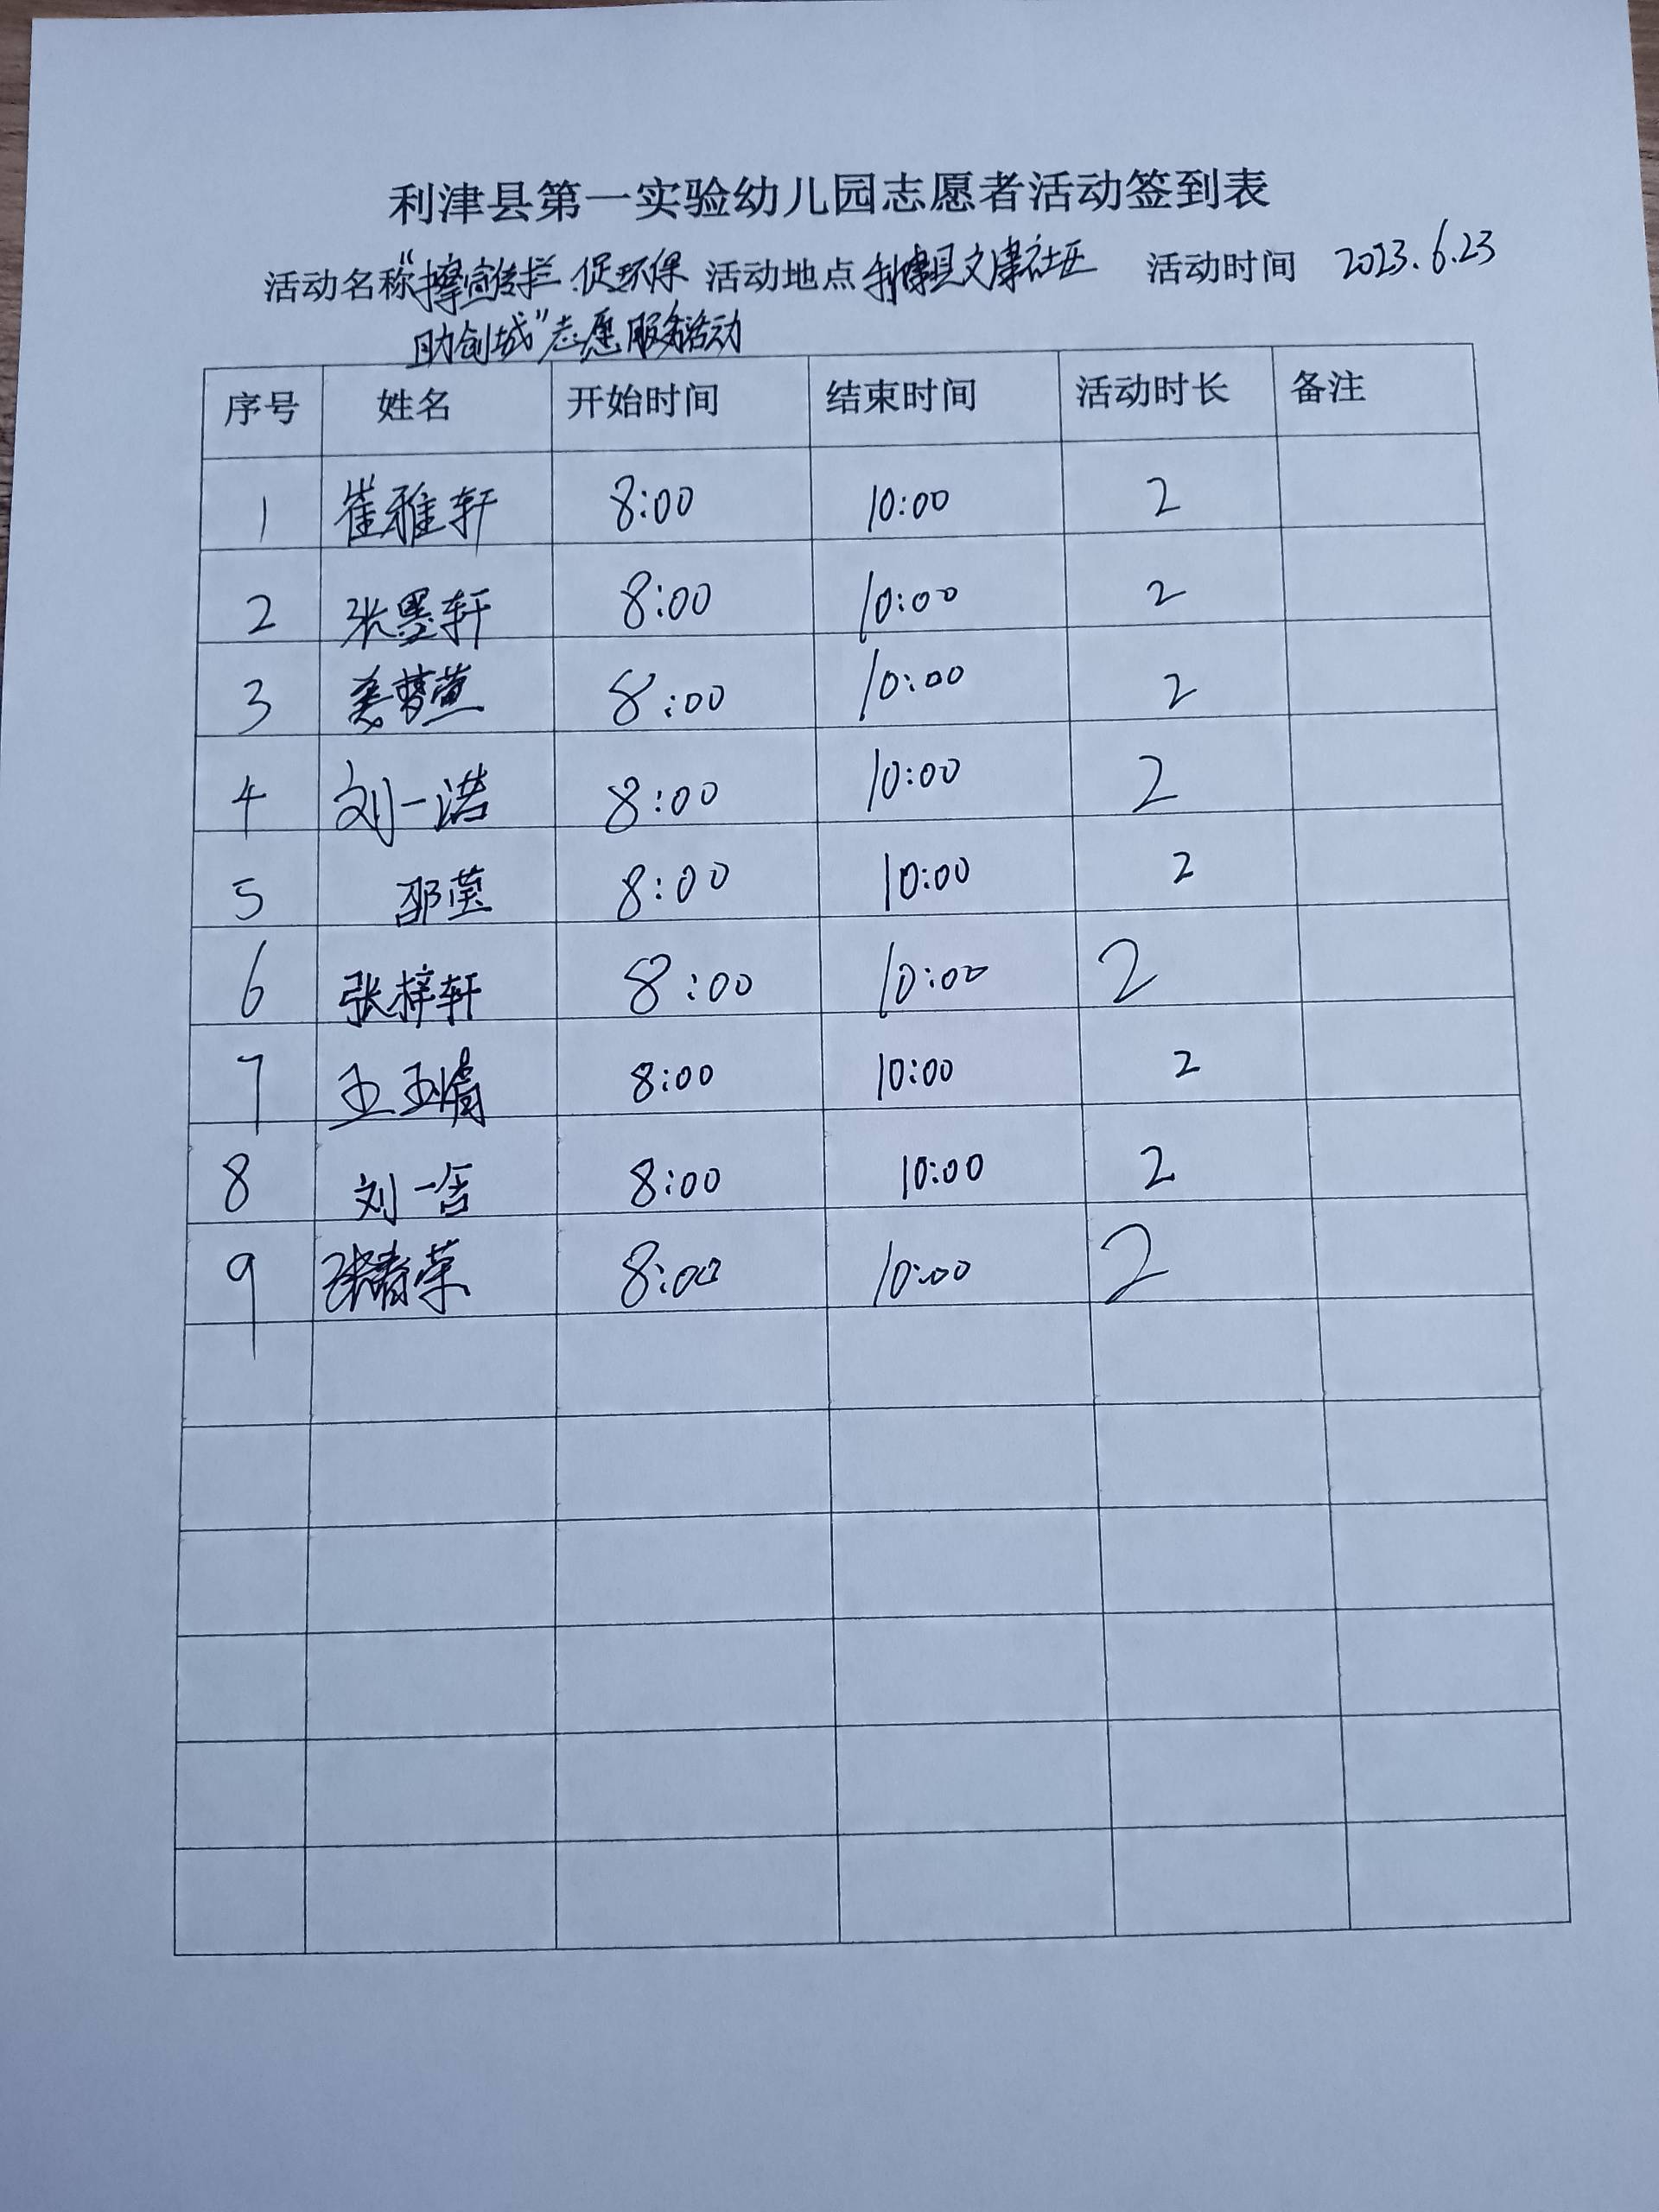 利津县第一实验幼儿园志愿者活动签到表
活动名称“擦宣传栏 促环保 活动地点 利津县文津社区 活动时间 2023.6.23
助创城”志愿服务活动
序号 姓名 开始时间 结束时间 活动时长 备注
1 崔雅轩 8:00 10:00 2
2 张墨轩 8:00 10:00 2
3 姜梦萱 8:00 10:00 2
4 刘一诺 8:00 10:00 2
5 邵莹 8:00 10:00 2
6 张梓轩 8:00 10:00 2
7 王玉 8:00 10:00 2
8 刘一含 8:00 10:00 2
9 张春荣 8:00 10:00 2